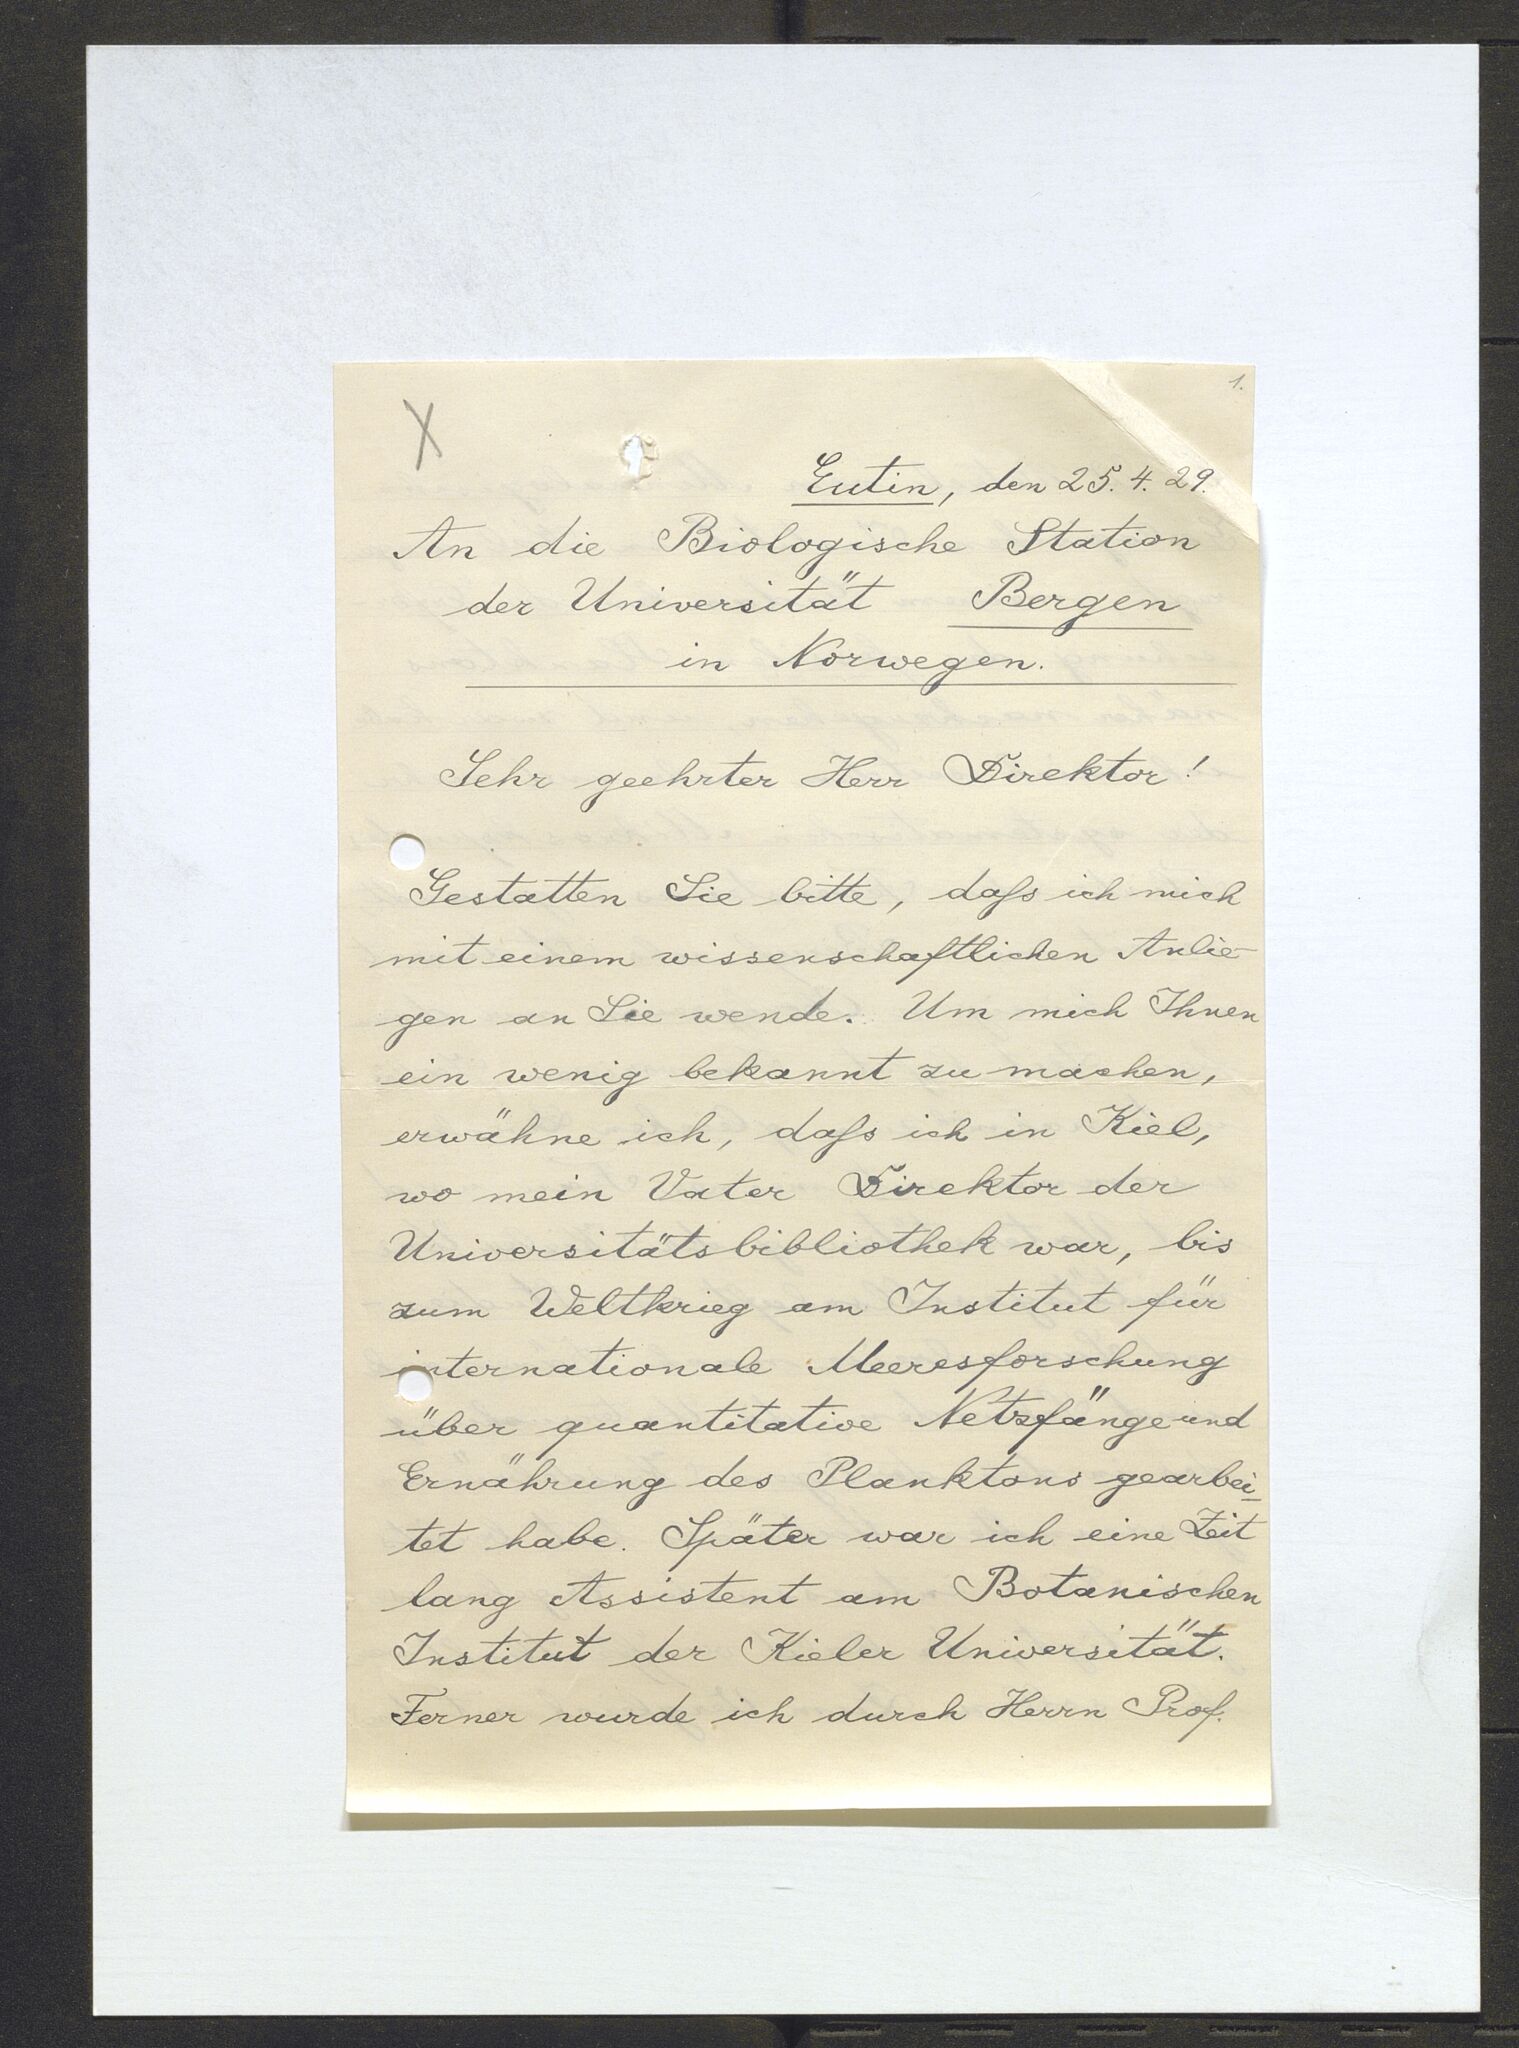 1.
X
Eutin, den 25.4.29.
An die Biologische Station
der Universität Bergen
in Norwegen.
Sehr geehrter Herr Direktor!
Gestatten Sie bitte, daß ich mich
mit einem wissenschaftlichen Anlie-
gen an Sie wende. Um mich Ihnen
ein wenig bekannt zu machen,
erwähne ich, daß ich in Kiel,
wo mein Vater Direktor der
Universitätsbibliothek war, bis
zum Weltkrieg am Institut für
internationale Meeresforschung
über quantitative Netzfänge und
Ernährung des Planktons gearbei-
tet habe. Später war ich eine Zeit
lang Assistent am Botanischen
Institut der Kieler Universität.
Ferner wurde ich durch Herrn Prof.